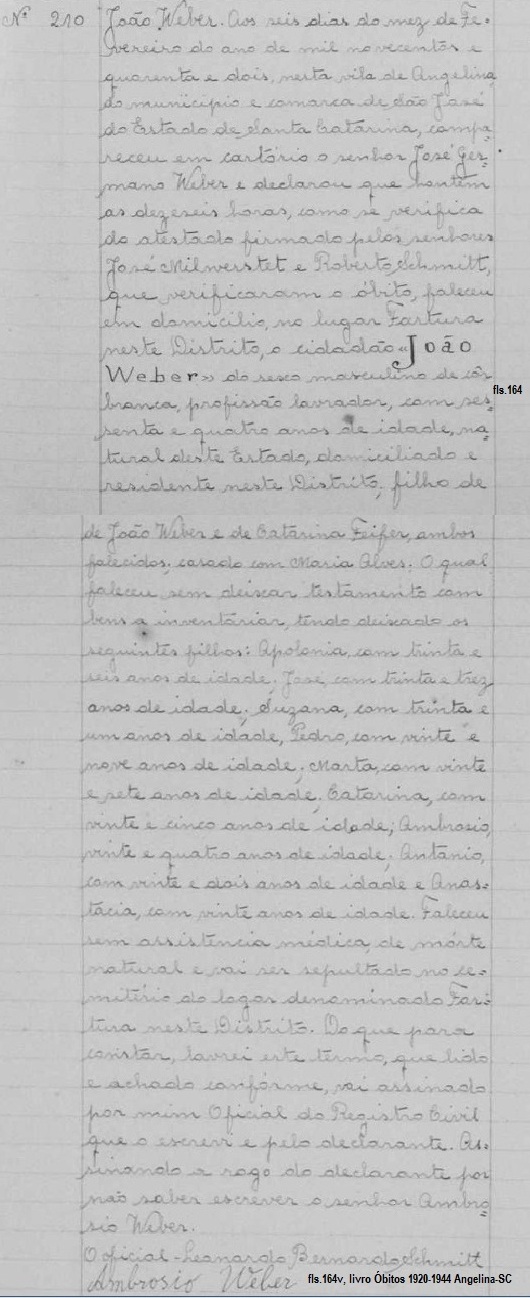 Nº 210 João Weber. Aos seis dias do mez de Fe-
vereiro do ano de mil novecentos e
quarenta e dois, nesta vila de Angelina
do município e comarca de São José
do Estado de Santa Catarina, compa-
receu em cartório o senhor José Ger-
mano Weber e declarou que hontem
as dezeseis horas, como se verifica
do atestado firmado pelos senhores
José Milwerstet e Roberto Schmitt,
que verificaram o óbito, faleceu
em domicilio, no lugar Fartura
neste Distrito, o cidadão «João
Weber» do sexo masculino de côr
fls.164
branca, profissão lavrador, com ses-
senta e quatro anos de idade, na-
tural deste Estado, domiciliado e
residente neste Distrito, filho de
de João Weber e de Catarina Feifer, ambos
falecidos; casado com Maria Alves. O qual
faleceu sem deixar testamento com
bens a inventariar, tendo deixado os
seguintes filhos: Apolonia, com trinta e
seis anos de idade; José, com trinta e trez
anos de idade; Suzana, com trinta e
um anos de idade, Pedro, com vinte e
nove anos de idade; Marta, com vinte
e sete anos de idade; Catarina, com
vinte e cinco anos de idade; Ambrosio,
vinte e quatro anos de idade; Antônio,
com vinte e dois anos de idade e Anas-
tácia, com vinte anos de idade. Faleceu
sem assistência médica, de mórte
natural e vai ser sepultado no ce-
mitério do logar denominado Far-
tura neste Distrito. Do que para
constar, lavrei este termo, que lido
e achado confórme, vai assinado
por mim Oficial do Registro Civil
que o escrevi e pelo declarante. As-
sinando a rogo do declarante por
não saber escrever o senhor Ambro-
sio Weber.
O oficial - Leonardo Bernardo Schmitt
Ambrosio Weber
fls.164v, livro Óbitos 1920-1944 Angelina-SC